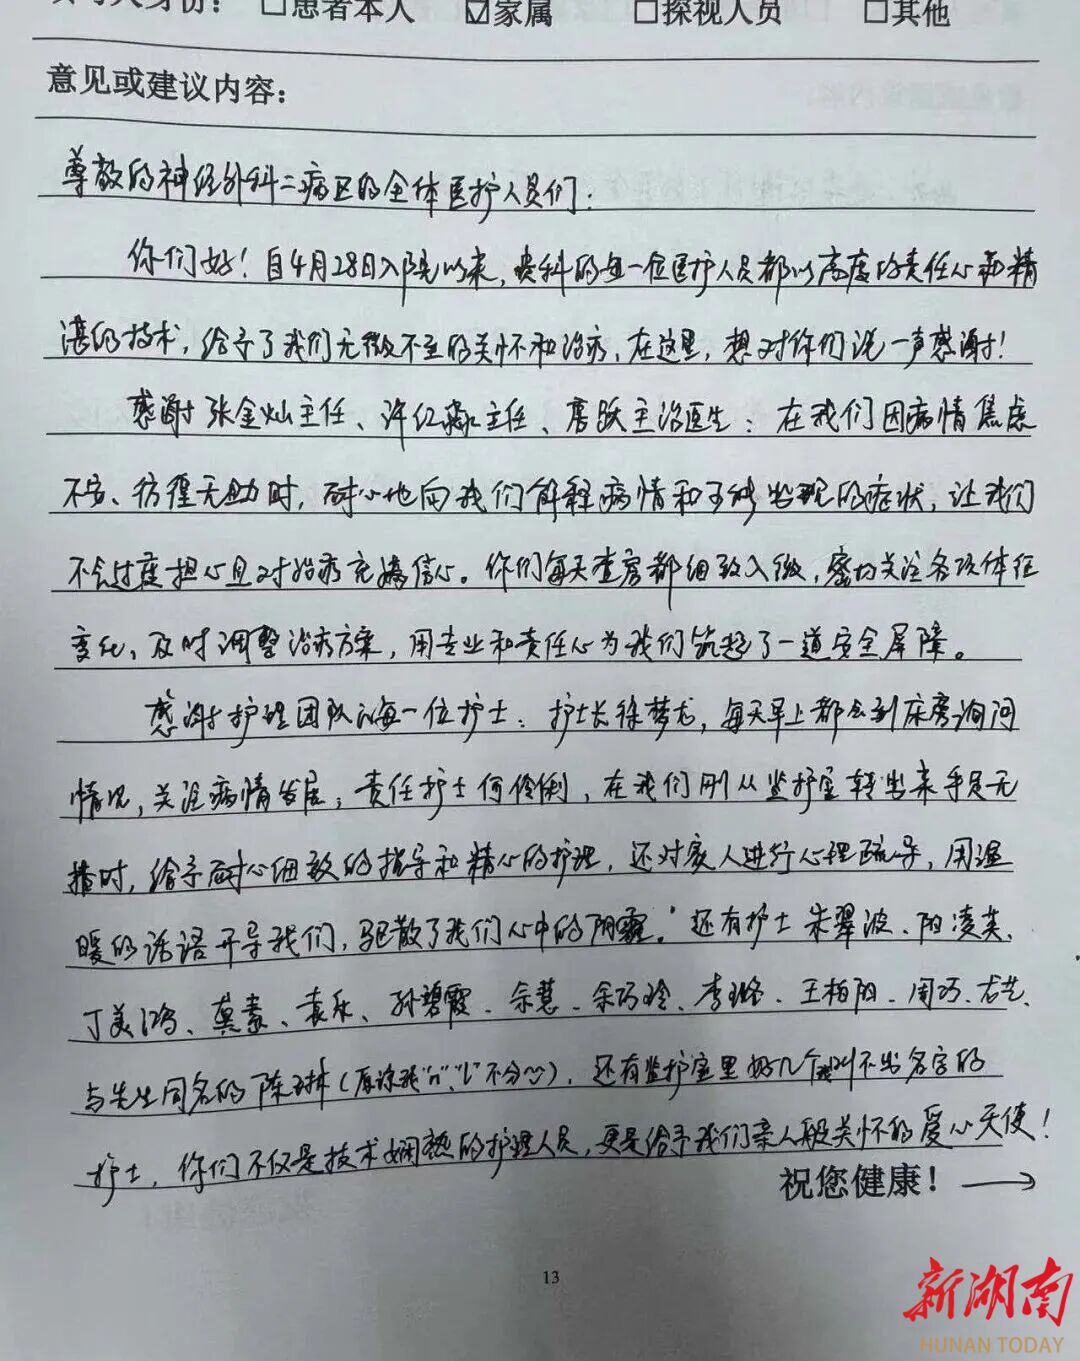 □患者本人 ☑家属 □探视人员 □其他
意见或建议内容：
尊敬的神经外科二病区的全体医护人员们：
你们好！自4月28日入院以来，贵科的每一位医护人员都以高度的责任心和精
湛的技术，给予了我们无微不至的关怀和治疗，在这里，想对你们说一声感谢！
感谢张金灿主任、许红淼主任、唐跃主治医生：在我们因病情焦虑
不安、彷徨无助时，耐心地向我们解释病情和可能出现的症状，让我们
不会过度担心且对治疗充满信心。你们每天查房都细致入微，密切关注各项体征
变化，及时调整治疗方案，用专业和责任心为我们筑起了一道安全屏障。
感谢护理团队的每一位护士：护士长徐梦龙，每天早上都会到床旁询问
情况，关注病情发展；责任护士何伶俐，在我们刚从监护室转出来手足无
措时，给予耐心细致的指导和精心的护理，还对家人进行心理疏导，用温
暖的话语开导我们，驱散了我们心中的阴霾。还有护士朱翠波、阳凌芙、
丁美鸿、莫素、袁乐、孙碧霞、余慧、余巧玲、李璐、王柏阳、周巧、尤艺、
与先生同名的陈琳（原谅我“n”、“l”不分），还有监护室里好几个叫不出名字的
护士，你们不仅是技术娴熟的护理人员，更是给予我们亲人般关怀的爱心天使！
祝您健康！→
13
新湖南
HUNAN TODAY